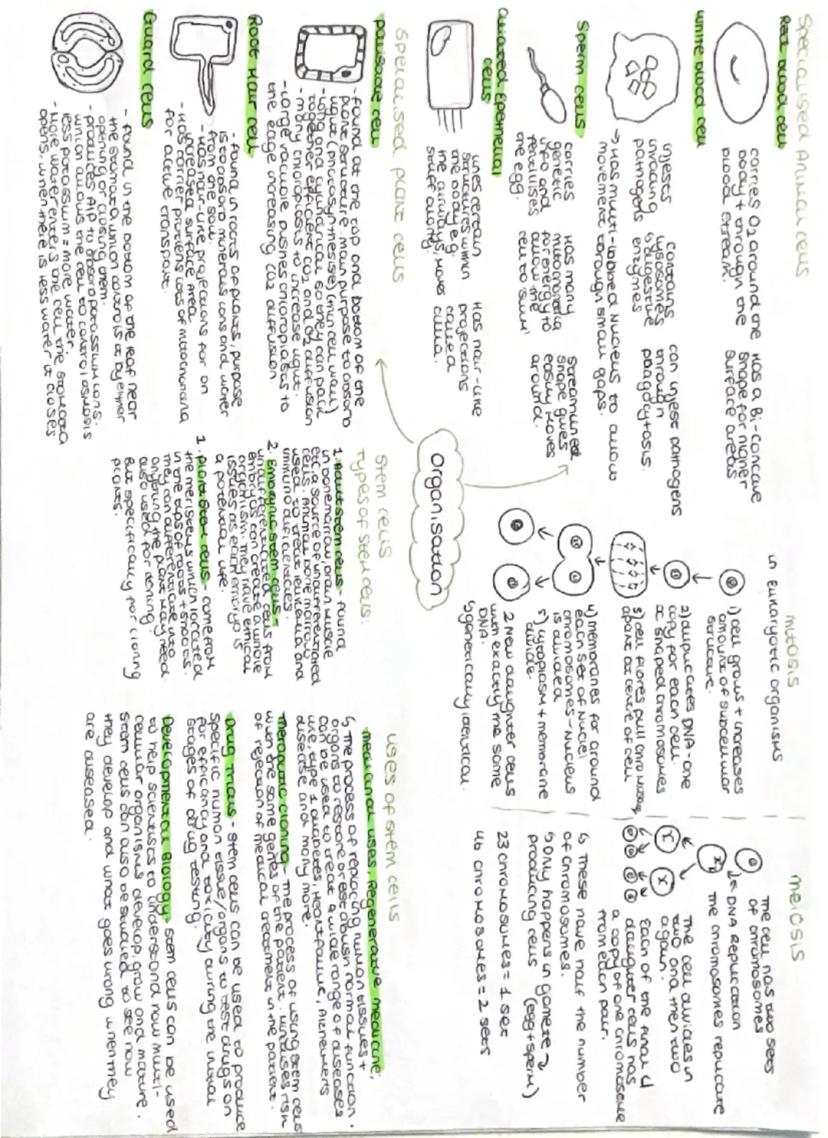 Specialised Animal cells
Red blood cell
carries O2 around the
body + through the
blood stream.
Has a Bi-concave
shape for higher
surface areas
White blood cell
injests
invading
pathogens
contains
lysosomes
digestive
enzymes
can injest pathogens
through
phagocytosis
→ Has multi-lobed nucleus to allow
movement through small gaps.
Sperm cells
carries
genetic
info and
fertilises
the egg.
Has many
mitochondria
for energy to
allow the
cell to swim
Streamlined
shape gives
easily moves
around.
ciliated epithelial
cells
lines certain
structures within
the body e.g.
the airways, moves
stuff along.
Has hair-like
projections
called
cilia.
Specialised plant cells
palisade cell
- found at the top and bottom of the
plant structure. main purpose to absorb
light (photosynthesise) (thin cell wall)
- long and cylindrical so they can pack
together efficient CO2 and O2 diffusion
- many chloroplasts to increase light.
- Large vacuole pushes chloroplasts to
the edge increasing CO2 diffusion.
Root Hair cell
- found in roots of plants, purpose
is to absorb minerals ions and water
from the soil.
- Has hair-like projections for an
increased surface area
- Has carrier proteins lots of mitochondria
for active transport.
Guard cells
- found in the bottom of the leaf near
the stomata which controls it by either
opening or closing them.
- produces ATP to absorb potassium ions.
which allows the cell to control osmosis
less potassium = more water.
- More water enters the cell, the stomata
opens, when there is less water it closes
organisation
Stem cells
Types of stem cells:
1. Adult stem cells - found
in bone marrow, brain muscle
etc a source of undifferentiated
cells. Animal bone marrow
used to treat leukemia and
immunodificiencies.
2. Embryonic stem cells =
undifferentiated cells from
embryos can create a whole
organism. They have ethical
issues as each embryo is
a potential life.
1. plant stem cells - come from
the meristems which located
in the tips of roots + shoots.
they can differentiate into
anything the plant may need
also used for cloning.
But specifically for cloning
plants.
mitosis
in eukaryotic organisms
1) cell grows + increases
amount of subcellular
structure.
2) duplicates DNA - one
copy for each cell.
X shaped chromosomes
3) cell fibres pull chromosomes
apart at centre of cell
4) membranes for around
each set of nuclei
chromosomes - nucleus
is divided
5) cytoplasm + membrane
divide.
2 New daughter cells
with exactly the same
DNA.
↳ genetically identical.
meiosis
The cell has two sets
of chromosomes
DNA Replication
The chromosomes replicate
The cell divides in
two and then two
again.
Each of the final 4
daughter cells has
a copy of one chromosome
from each pair.
↳ These have half the number
of chromosomes.
↳ Only happens in gamete
producing cells (egg + sperm)
23 chromosomes = 1 set
46 chromosomes = 2 sets
uses of stem cells
medicinal uses, Regenerative medicine:
↳ The process of replacing human tissues +
organs to restore or establish normal function.
can be used to treat a wide range of diseases
like, type 1 diabetes, Heart failure, Alzheimers
disease and many more.
Therapeutic cloning - The process of using stem cells
with the same genes of the patient. Minimises risk
of rejection of medical treatment in the patient.
Drug trials - stem cells can be used to produce
specific human tissue/organs to test drugs on
for efficiancy and toxicity during the initial
stages of drug testing.
Developmental Biology - stem cells can be used
to help scientists to understand how multi-
cellular organisms develop, grow and mature.
stem cells can also be studied to see how
they develop and what goes wrong when they
are diseased.